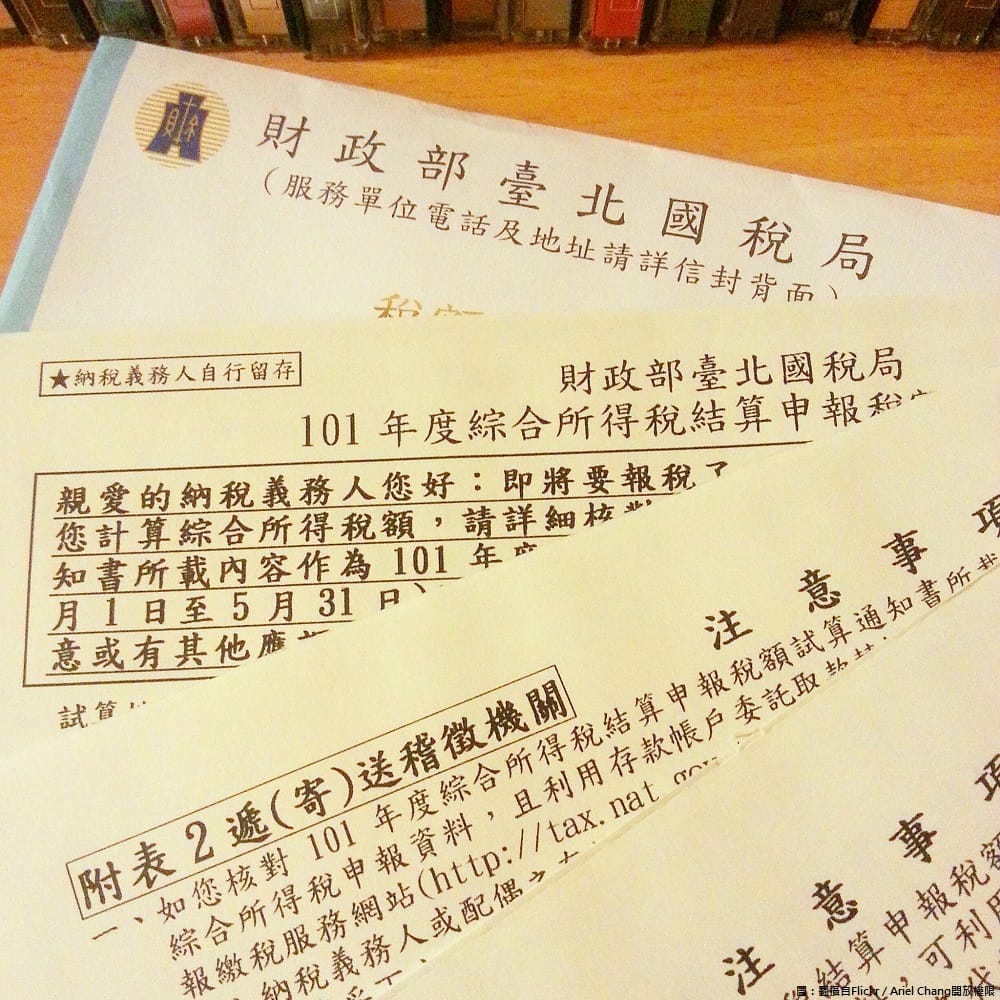 財政部臺北國稅局
(服務單位電話及地址請詳信封背面)
稅
★納稅義務人自行留存
財政部臺北國稅局
101 年度綜合所得稅結算申報稅
親愛的納稅義務人您好：即將要報稅了
您計算綜合所得稅額，請詳細核對
知書所載內容作為 101 年度
月 1 日至 5 月 31 日)
意或有其他應
試算
注意事項
附表 2 遞(寄)送稽徵機關
一、如您核對 101 年度綜合所得稅結算申報稅額試算通知書所載
綜合所得稅申報資料，且利用存款帳戶委託取款
報繳稅服務網站(http://tax.nat.gov
納稅義務人或配偶之
注意事項
結算申報稅額
，可利用
圖：翻攝自Flickr / Ariel Chang開放權限